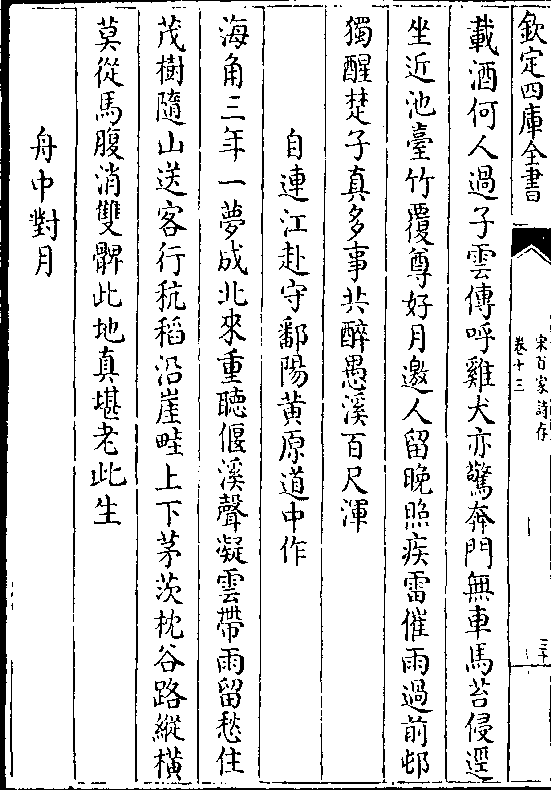 欽定四庫全書
宋百家詩存
卷十三
三十
載酒何人過子雲傳呼雞犬亦驚奔門無車馬苔侵逕
坐近池臺竹覆尊好月邀人留晚照疾雷催雨過前邨
獨醒楚子真多事共醉愚溪百尺渾
自連江赴守鄱陽黄原道中作
海角三年一夢成北來重聽偃溪聲凝雲帶雨留愁住
茂樹隨山送客行秔稻沿崖畦上下茅茨枕谷路縱橫
莫從馬腹消雙髀此地真堪老此生
舟中對月